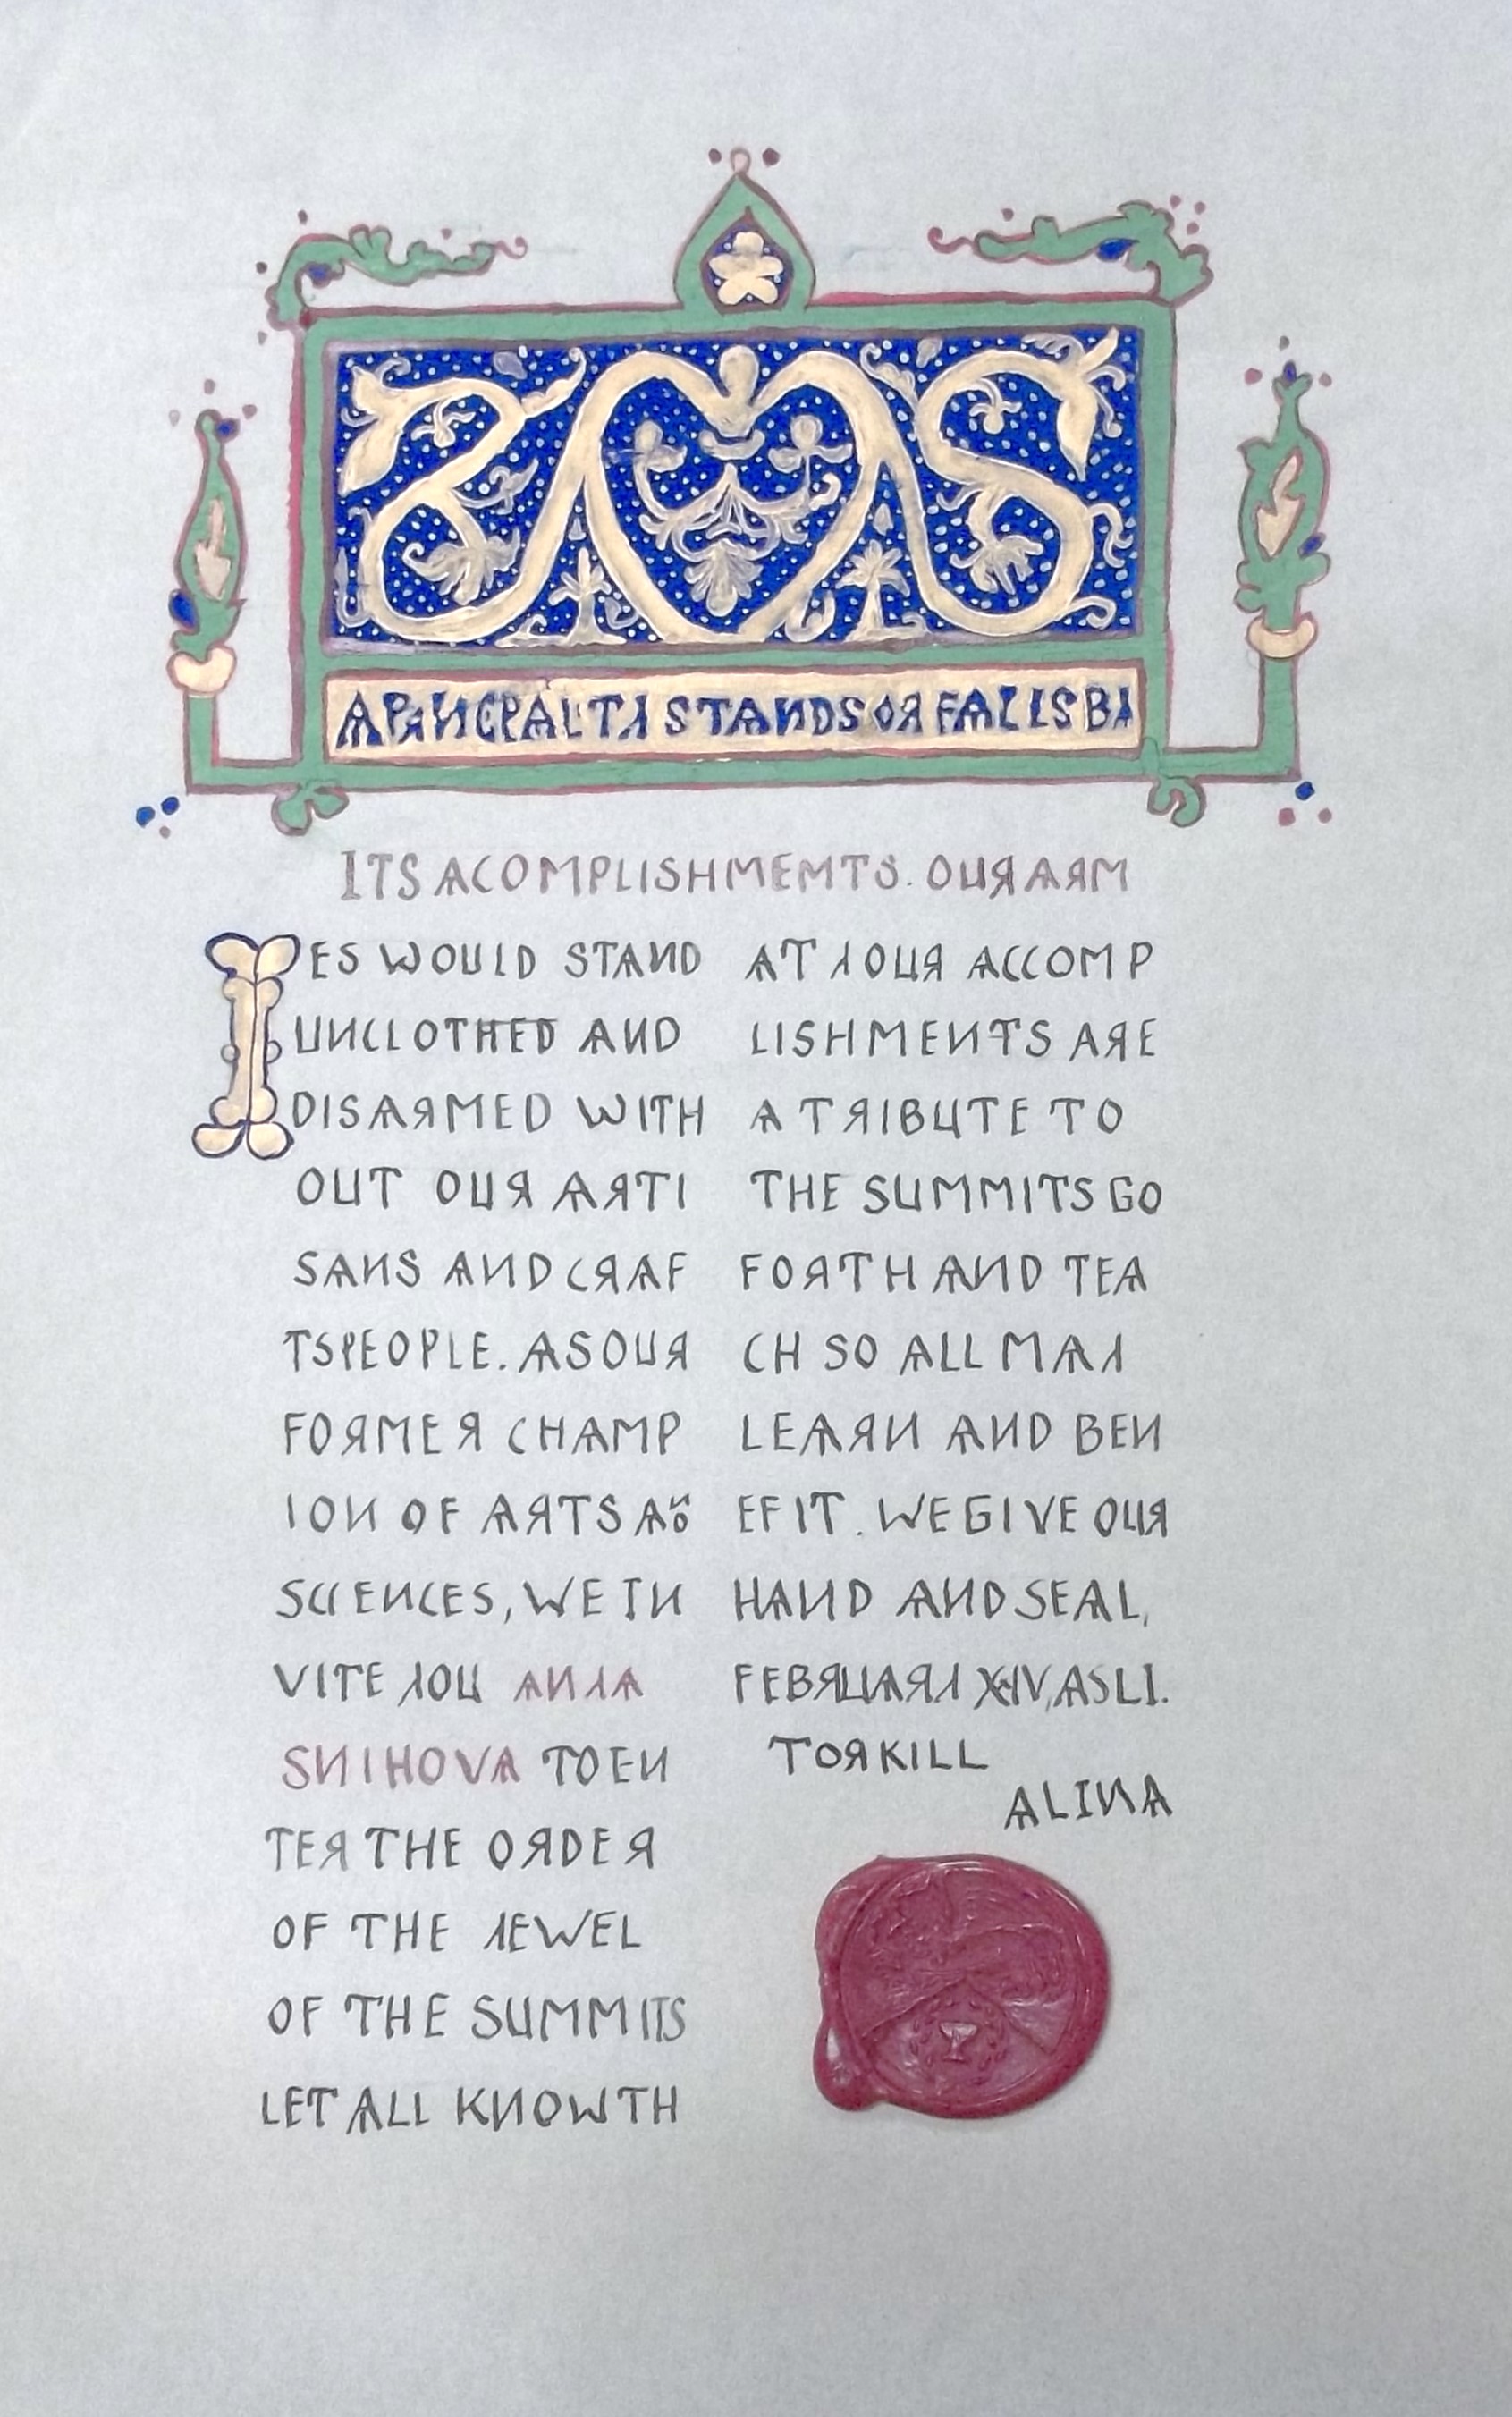 A PRINCPALTY STANDS OR FALLS BY
ITS ACOMPLISHMEMTS. OUR ARM
IES WOULD STAND
UNCLOTHED AND
DISARMED WITH
OUT OUR ARTI
SANS AND CRAF
TSPEOPLE. AS OUR
FORMER CHAMP
ION OF ARTS AND
SCIENCES, WE IN
VITE YOU ANYA
SNIHOVA TO EN
TER THE ORDER
OF THE JEWEL
OF THE SUMMITS
LET ALL KNOW TH
AT YOUR ACCOMP
LISHMENTS ARE
A TRIBUTE TO
THE SUMMITS GO
FORTH AND TEA
CH SO ALL MAY
LEARN AND BEN
EFIT. WE GIVE OUR
HAND AND SEAL,
FEBRUARY AS LI.
TORKILL
ALINA